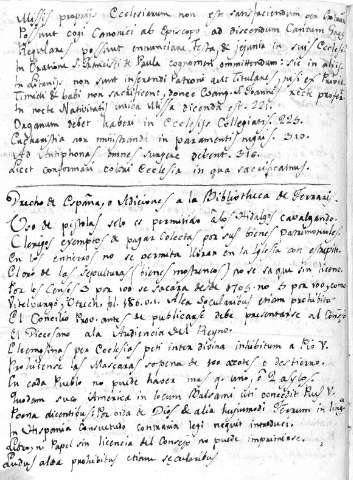 Missis proprijs Ecclesiarum non est satisfaciendum
Possunt cogi Canonici ab Episcopo ad discendum Cantum
Regulares possunt enunciare festa, & jejunia in suis Ecclesijs
In Oratione S. Francisci de Paula cognomen omittendum: sic in alijs
non sunt inferendi Patroni aut Titulares, nisi ex
non sacrificent, donec
In nocte Nativitatis unica Missa dicenda est. 221.
Organum debet haberi in Ecclesijs Collegiatis. 225.
Eucharistia non ministranda in paramentis nigris. 310.
Ad Antiphonas omnes surgere debent. 316.
licet conformari colori Ecclesia in qua sacrificamus.
Drecho de España, o Adiciones a la Bibliotheca de Ferraris.
Uso de pistolas solo es permitido a los Hidalgos cavalgando.
Clerigos exemptos de pagar colectas por sus bienes Patrimoniales.
En los entierros no se permita lloran en la Iglesia con
de las sepulturas no se saque sin licenc.
Por los Censos 3 por 100 se sacara desde 1705. no 5 por 100, como
fol. 180. Alea Secularibus etiam prohibita
El Concilio Prov. antes de publicarse debe presentarse al Consejo
El Diocesano a la Audiencia del Reyno.
Eleemosinas per Ecclesias peti inter divina inhibitum a Pio V.
las Mascaras so pena de 100 azotes, e destierro.
En cada Pueblo no puede haver mas q. uno, ô 2
Quodam succo America in locum Balsami uti concedit Pius V.
Poena dicentibus: Por vida de Dios & alia hujusmodi
In Hispania Consuetudo contraria legi nequit introduci.
Libro, ni Papel sin licencia del Consejo no puede imprimirse.
Ludus alea prohibitus etiam secularibus